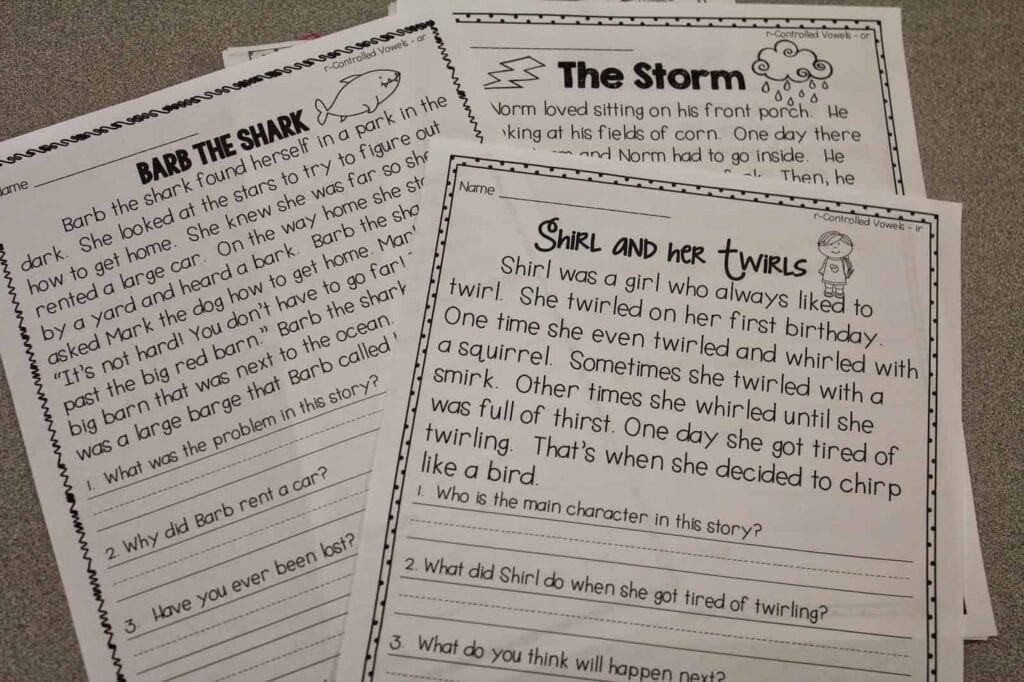 r-Controlled Vowels - ar
Name
BARB THE SHARK
Barb the shark found herself in a park in the
dark. She looked at the stars to try to figure out
how to get home. She knew she was far so she
rented a large car. On the way home she
by a yard and heard a bark. Barb the
asked Mark the dog how to get home.
"It's not hard! You don't have to go far!
past the big red barn." Barb the shark
big barn that was next to the ocean.
was a large barge that Barb called
1. What was the problem in this story?
2. Why did Barb rent a car?
3. Have you ever been lost?
r-Controlled Vowels - or
The Storm
Norm loved sitting on his front porch. He
at his fields of corn. One day there
and Norm had to go inside. He
Then, he
Name
r-Controlled Vowels - ir
Shirl and her Twirls
Shirl was a girl who always liked to
twirl. She twirled on her first birthday.
One time she even twirled and whirled with
a squirrel. Sometimes she twirled with a
smirk. Other times she whirled until she
was full of thirst. One day she got tired of
twirling. That's when she decided to chirp
like a bird.
1. Who is the main character in this story?
2. What did Shirl do when she got tired of twirling?
3. What do you think will happen next?